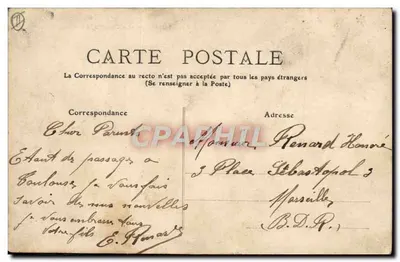 CARTE POSTALE
La Correspondance au recto n'est pas acceptée par tous les pays étrangers
(Se renseigner à la Poste)
Correspondance
Adresse
Cher Parents
Etant de passage a
Toulouse je vous fais
savoir de mes nouvelles
je vous embrasse tous
votre fils E. Renard
Monsieur Renard Honoré
3 Place Sébastopol 3
Marseille
B.D.R.
CPAPHIL